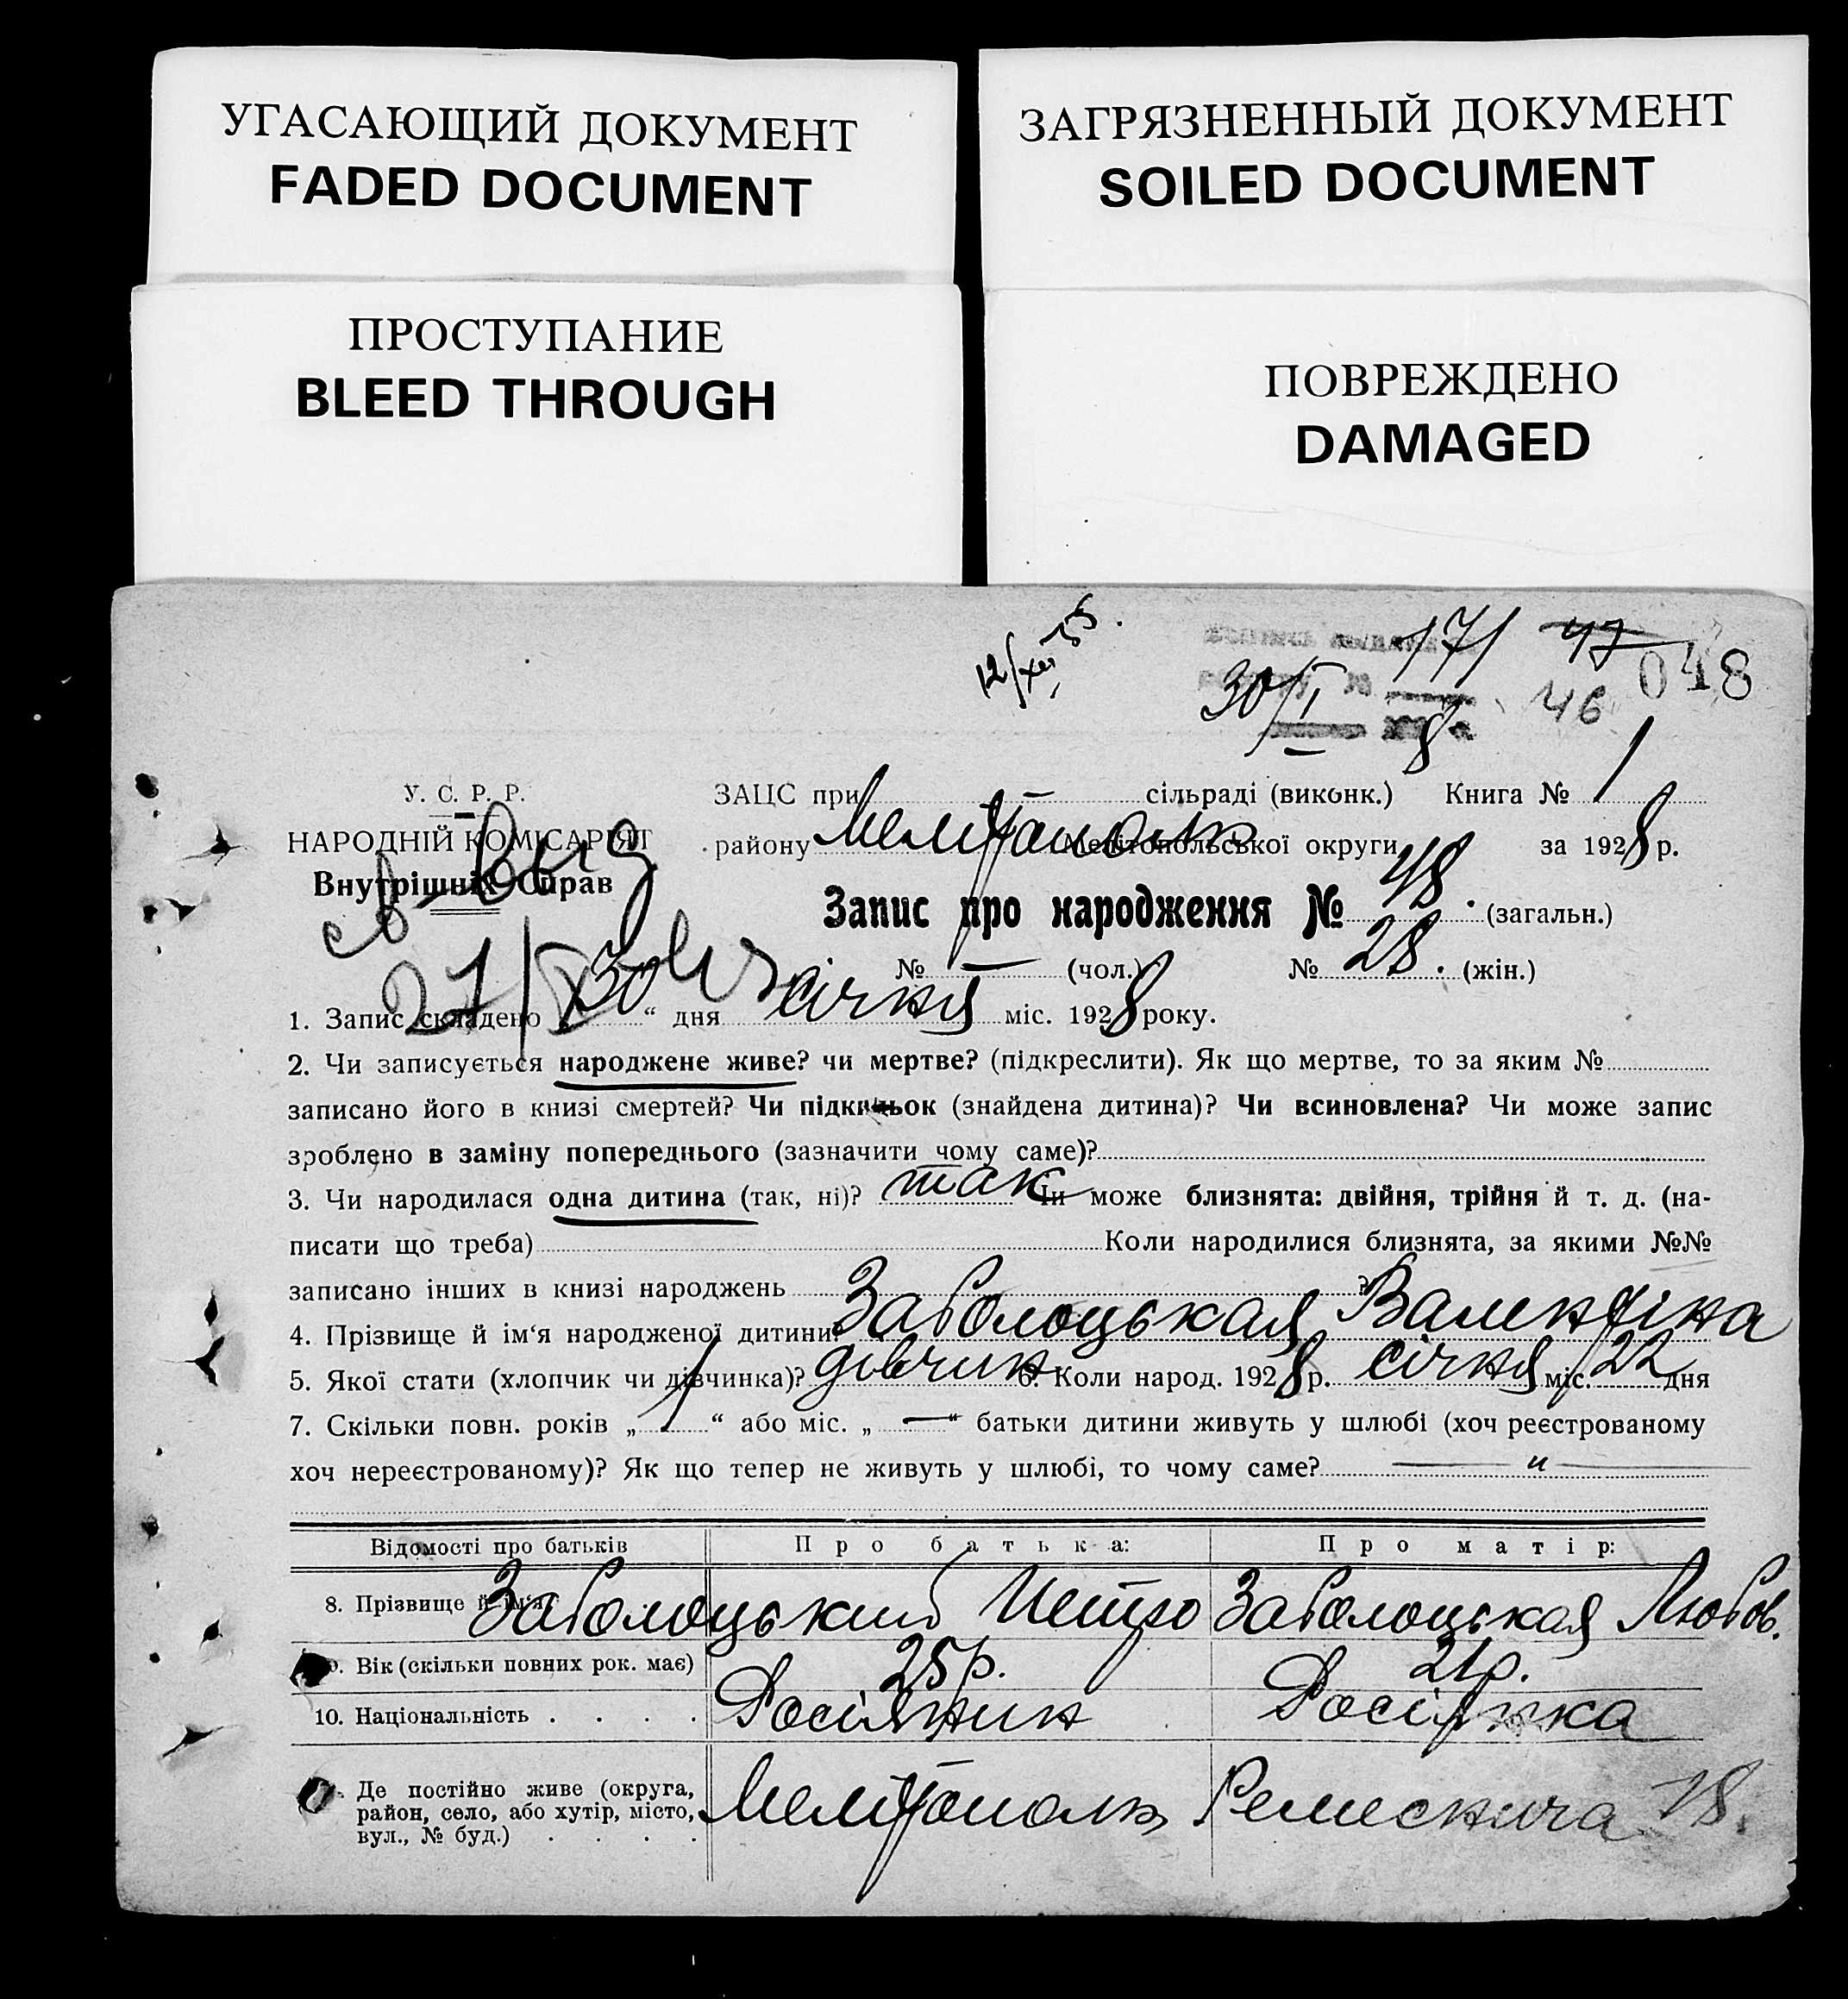 УГАСАЮЩИЙ ДОКУМЕНТ
FADED DOCUMENT
ЗАГРЯЗНЕННЫЙ ДОКУМЕНТ
SOILED DOCUMENT
ПРОСТУПАНИЕ
BLEED THROUGH
ПОВРЕЖДЕНО
DAMAGED
12/XII 35.
171 47 048
30/I 8 46
У. С. Р. Р.
НАРОДНІЙ КОМІСАРІЯТ
Внутрішніх Справ
27/V
ЗАЦС при сільраді (виконк.) Книга № 1
району Мелітополь Мелітопольської округи за 1928 р.
Запис про народження № 48. (загальн.)
№ — (чол.) № 28. (жін.)
1. Запис складено „30“ дня січня міс. 1928 року.
2. Чи записується народжене живе? чи мертве? (підкреслити). Як що мертве, то за яким №
записано його в книзі смертей? Чи підкидьок (знайдена дитина)? Чи всиновлена? Чи може запис
зроблено в заміну попереднього (зазначити чому саме)?
3. Чи народилася одна дитина (так, ні)? так Чи може близнята: двійня, трійня й т. д. (на-
писати що треба) Коли народилися близнята, за якими №№
записано інших в книзі народжень ?
4. Прізвище й ім‘я народженої дитини? Заболоцькая Валентіна
5. Якої стати (хлопчик чи дівчинка)? дівчин 6. Коли народ. 1928 р. січня міс. 22 дня
7. Скільки повн. років „1“ або міс. „—“ батьки дитини живуть у шлюбі (хоч реєстрованому
хоч нереєстрованому)? Як що тепер не живуть у шлюбі, то чому саме? — „ —
Відомості про батьків Про батька: Про матір:
8. Прізвище й ім‘я. Заболоцький Петро Заболоцькая Любов.
9. Вік (скільки повних рок. має) 25 р. 21 р.
10. Національність . . . . Росіянин Росіянка
Де постійно живе (округа,
район, село, або хутір, місто,
вул., № буд.) . . . . Мелітополь 18.